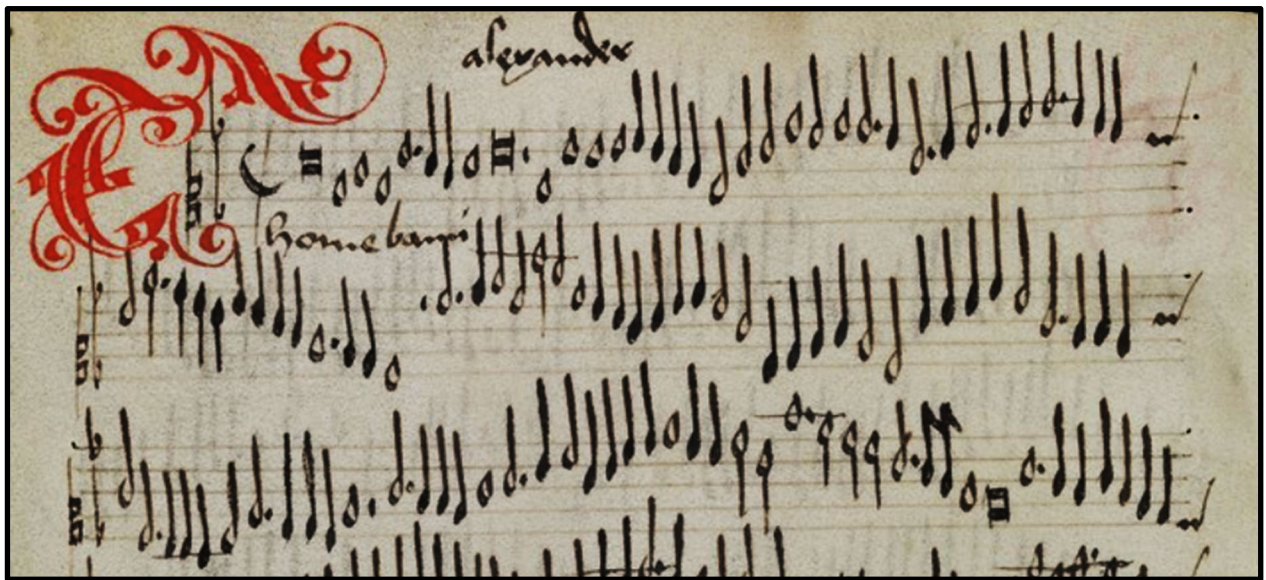 alexander
Thomebanni